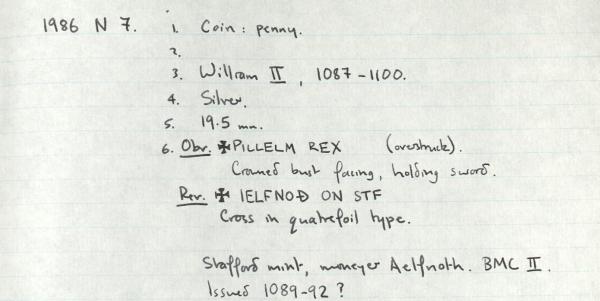 1986 N 7. 1. Coin: penny.
2.
3. William II, 1087-1100.
4. Silver.
5. 19.5 mm.
6. Obv. ✠PILLELM REX (overstruck).
Crowned bust facing, holding sword.
Rev. ✠ IELFNOÐ ON STF
Cross in quatrefoil type.
Stafford mint, moneyer Aelfnoth. BMC II.
Issued 1089-92?